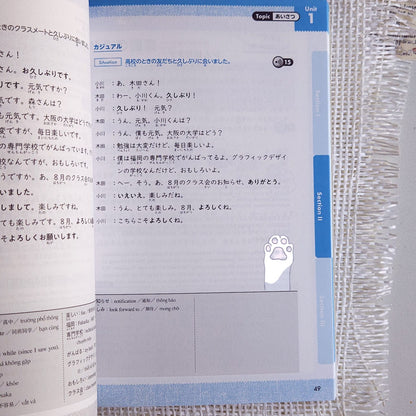 きのクラスメートと久しぶりに会いま
お久しぶりです。
す。元気ですか?
気です。森さんは?
元気です。大阪の大学はどう
ですが、毎日楽しいです。
の専門学校でがんばっていま
んですけど、おもしろいです。
すか。あ、8月のクラス会の
いました。
しまして。楽しみですね。
ても楽しみです。8月、よろ
そよろしくお願いします。
Topic あいさつ
Unit 1
カジュアル
Situation 高校のときの友だちと久しぶりに会いました。
15
小川:あ、木田さん!
木田:わー、小川くん。久しぶり!
小川:久しぶり! 元気?
木田:うん、元気。小川くんは?
小川:うん、僕も元気。大阪の大学はどう?
木田:勉強は大変だけど、毎日楽しいよ。
小川:僕は福岡の専門学校でがんばってるよ。グラフィックデザイ
ンの学校なんだけど、おもしろいよ。
木田:へー。そう。あ、8月のクラス会のお知らせ、ありがとう。
小川:いえいえ。楽しみだね。
木田:うん、とても楽しみ。8月、よろしくね。
小川:こちらこそよろしくね。
Section I
Section II
Section III
知らせ:notification/通知/thông báo
しみ:look forward to/期待/mong chờ
/高中/trường phổ thông
te/同班同学/bạn cùng
while (since I saw you).
khỏe
/vất vả
49